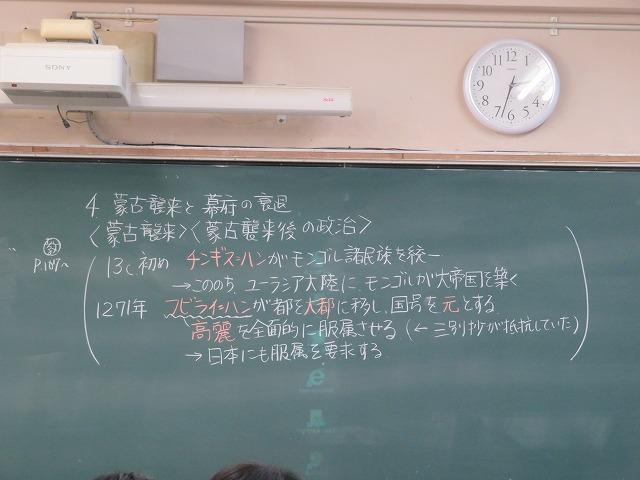 SONY
12 1 2 3 4 5 6 7 8 9 10 11
4 蒙古襲来と幕府の衰退
〈蒙古襲来〉〈蒙古襲来後の政治〉
教 P.107〜
13c初め チンギス=ハンがモンゴル諸民族を統一
→こののち、ユーラシア大陸に、モンゴルが大帝国を築く
1271年 フビライ=ハンが都を大都に移し、国号を元とする
高麗を全面的に服属させる(←三別抄が抵抗していた)
→日本にも服属を要求する